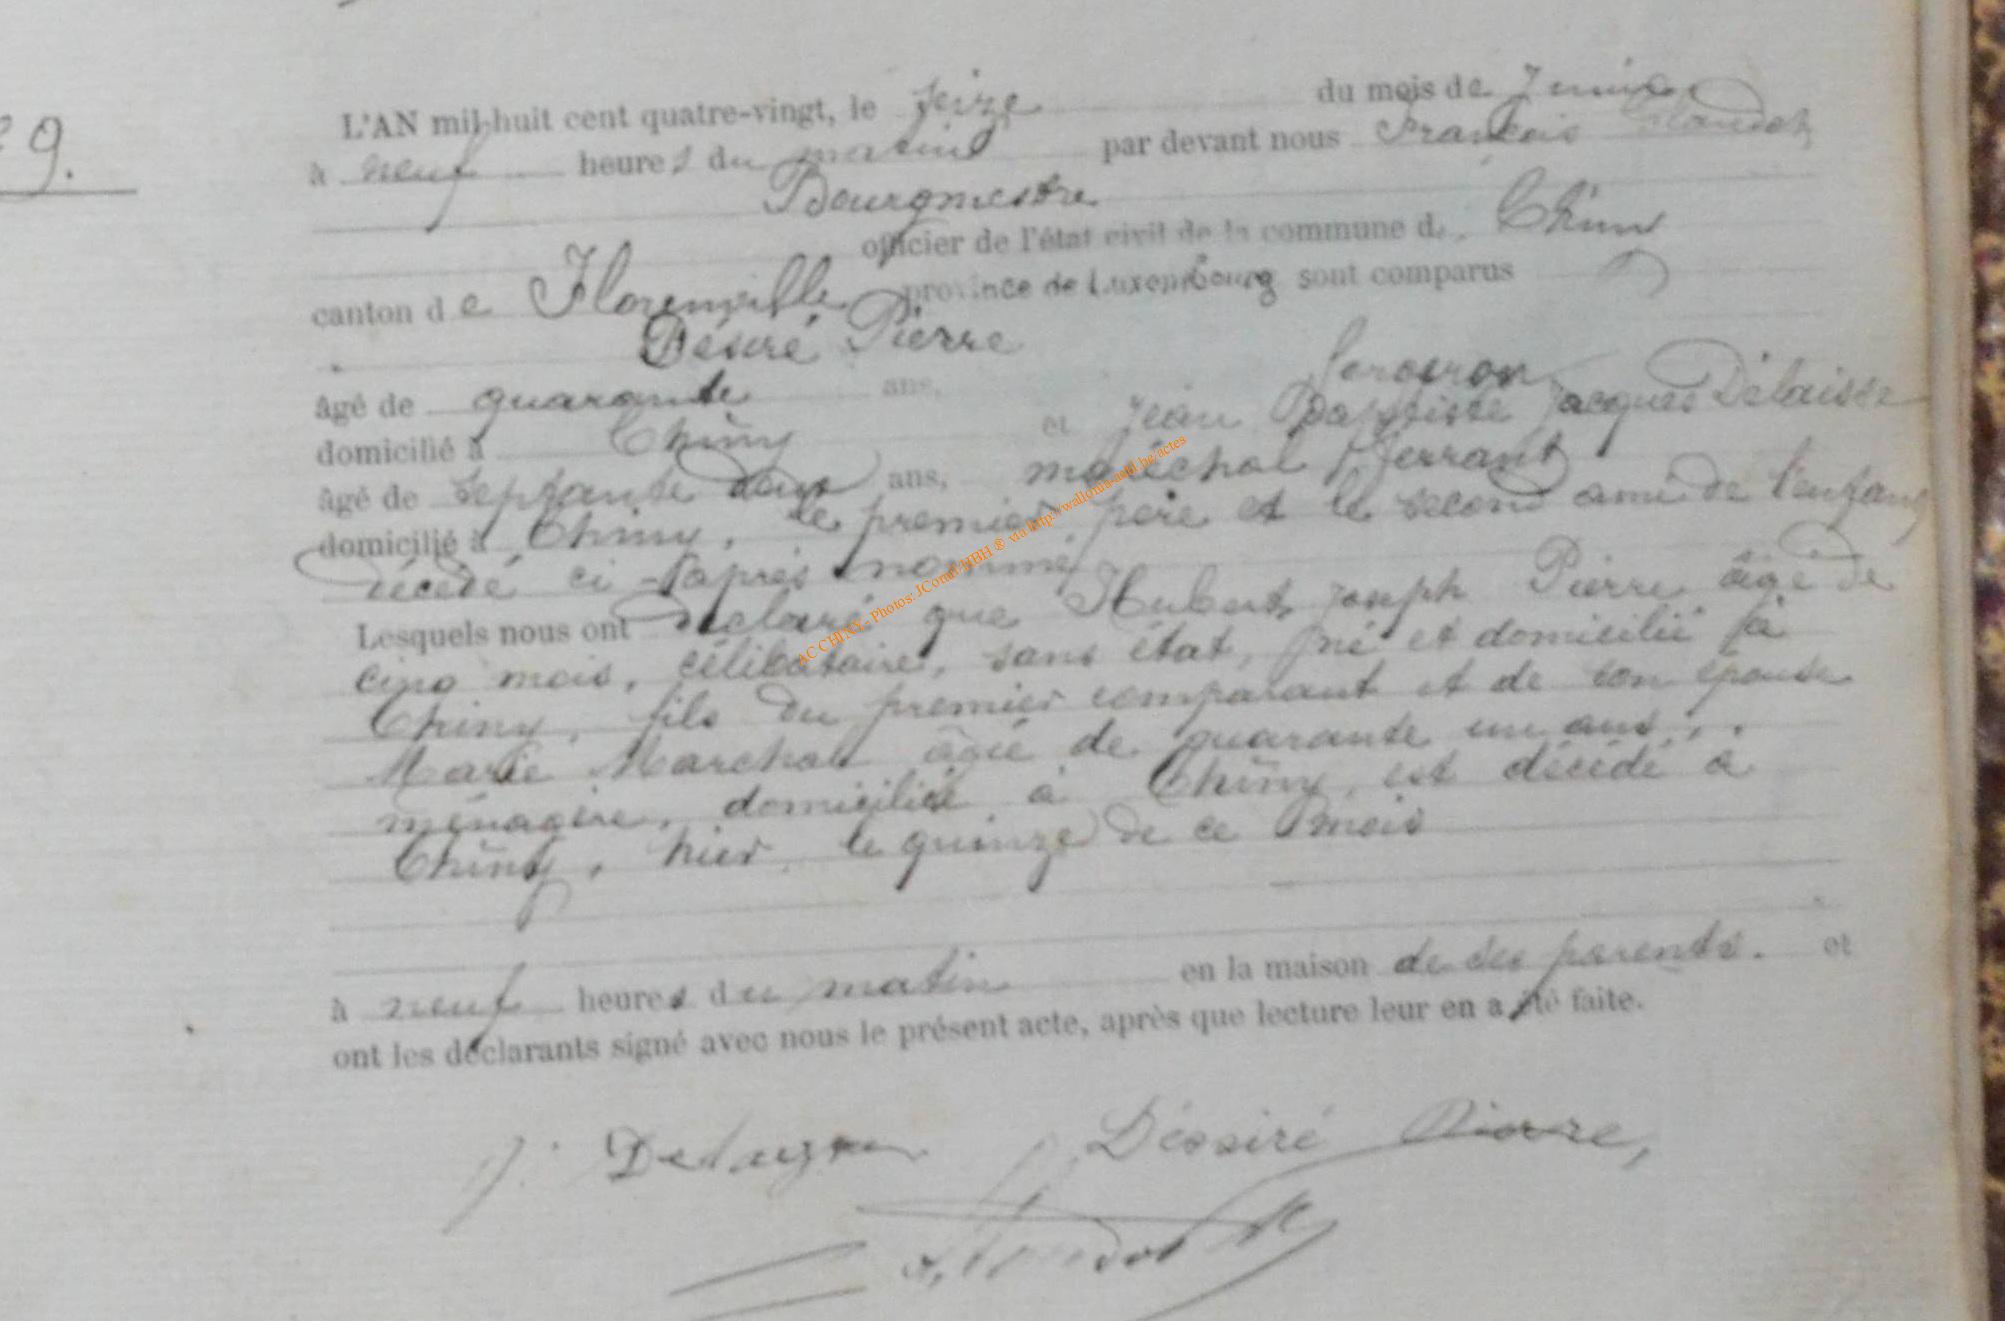 9.
L'AN mil-huit cent quatre-vingt, le seize du mois de
à neuf heures du matin par devant nous François
Bourgmestre
officier de l'état civil de la commune de Chiny
canton de Florenville province de Luxembourg sont comparus
Désiré Pierre
âgé de quarante ans,
domicilié à Chiny et Jean Baptiste Jacques Délaisse
âgé de septante deux ans, maréchal ferrant
domicilié à Chiny, le premier père et le second ami de l'enfant
décédé ci-après nommé
Lesquels nous ont déclaré que Hubert Joseph Pierre âgé de
cinq mois, célibataire, sans état, né et domicilié à
Chiny, fils du premier comparant et de son épouse
Marie Marchal âgée de quarante un ans,
ménagère, domiciliée à Chiny, est décédé à
Chiny, hier, le quinze de ce mois
à neuf heures du matin en la maison de ses parents. et
ont les déclarants signé avec nous le présent acte, après que lecture leur en a été faite.
J. Désiré Pierre,
AC CHINY - Photos: JComin/HBH ® via http://wallonia-asbl.be/actes